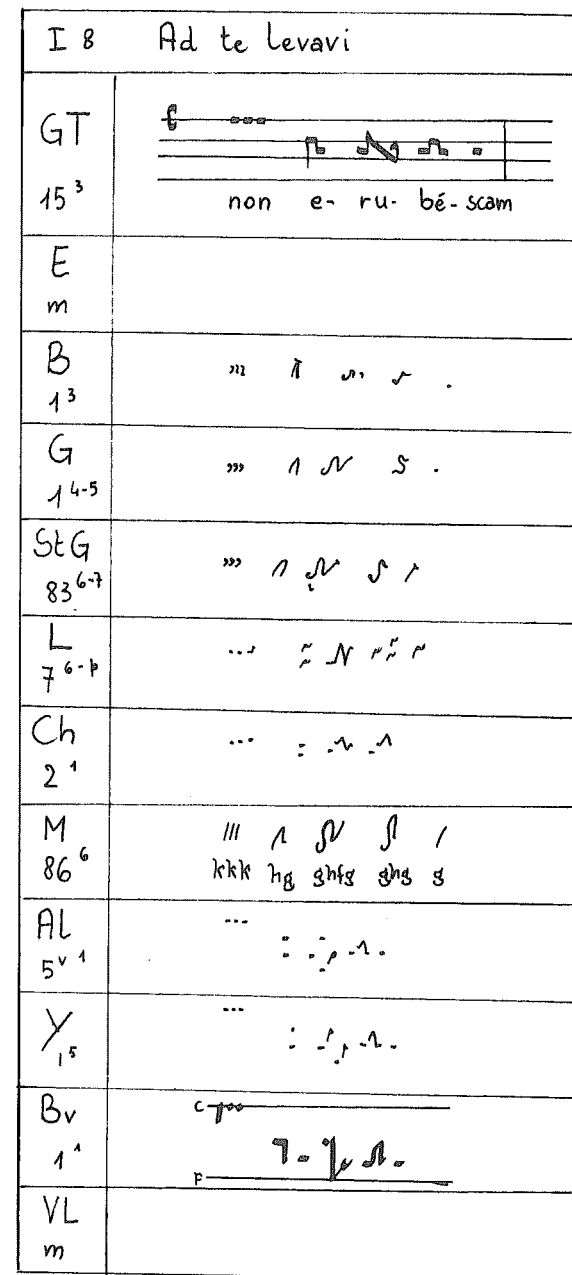 I 8 Ad te levavi
GT
15³
non e- ru- bé- scam
E
m
B
1³
G
1⁴⁻⁵
StG
83⁶⁻⁷
L
7⁶⁻ᵖ
Ch
2¹
M
86⁶
kkk hg ghfg ghg g
Al
5ᵛ ¹
Y
1⁵
Bv
1¹
C
F
VL
m